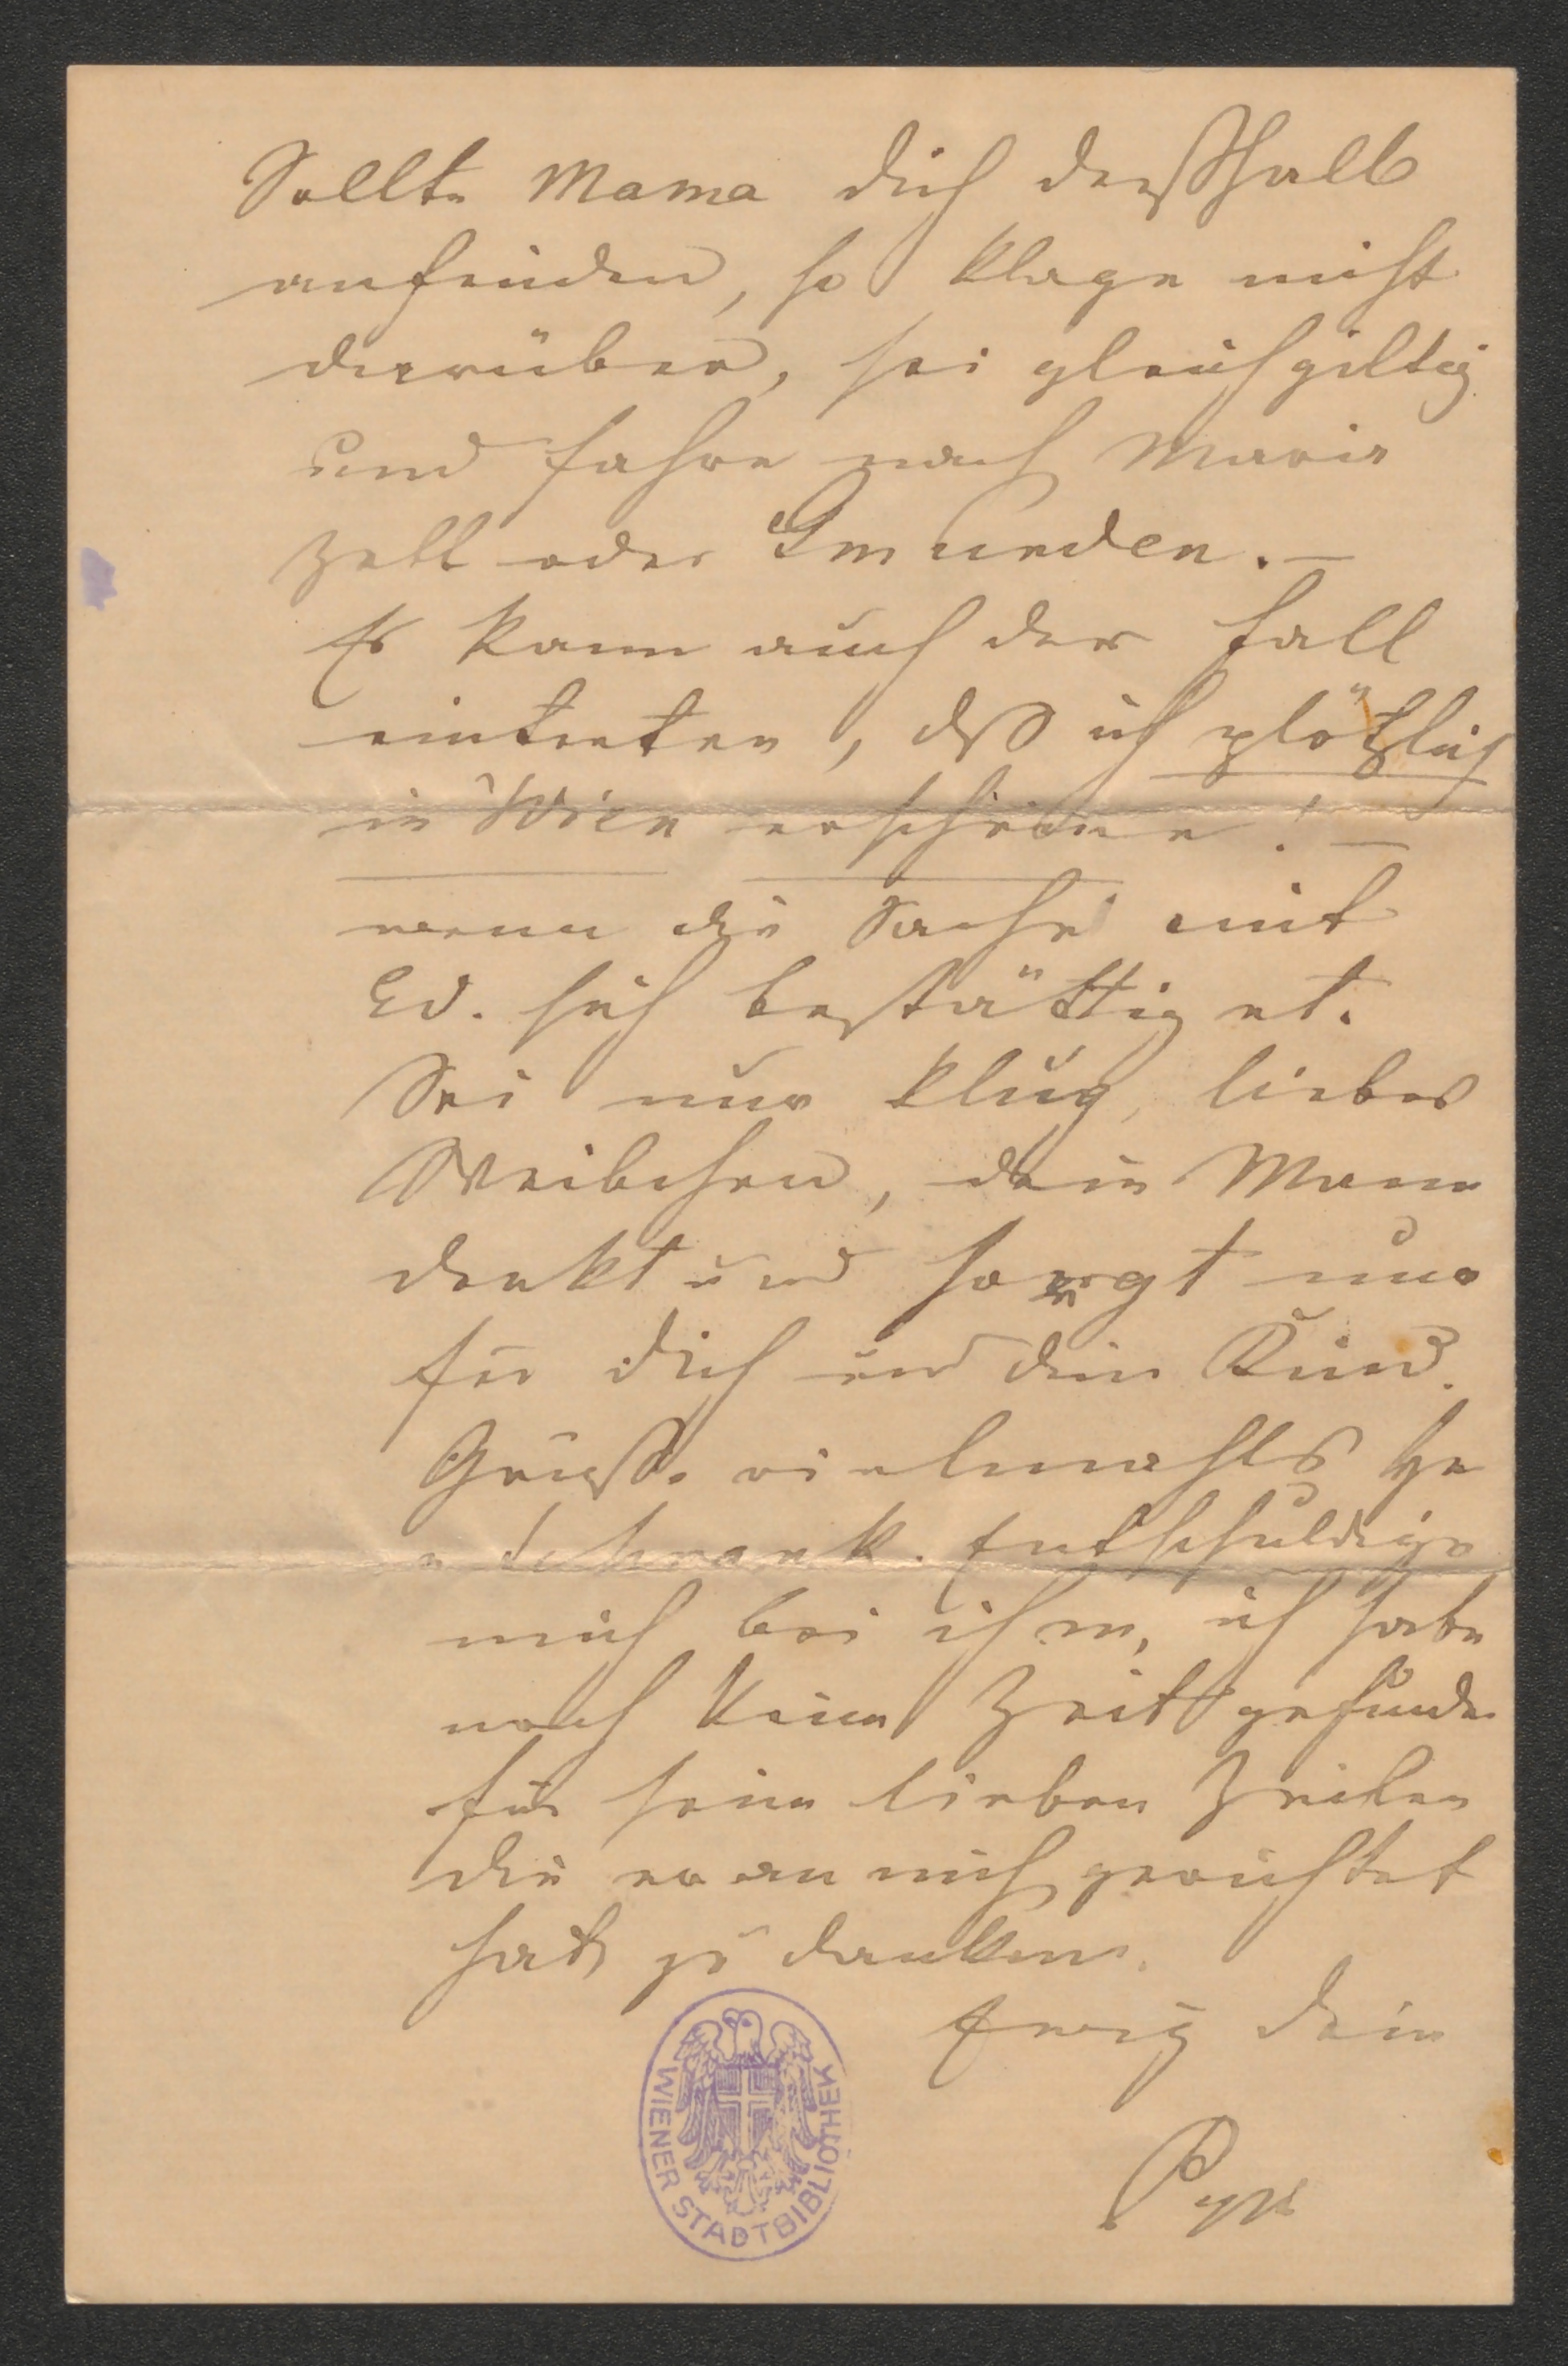 Sollte Mama dich desshalb
anfeinden, so klage nicht
darüber, sei gleichgiltig
und fahre nach Maria
Zell oder Gmunden. —
Es kann auch der Fall
eintreten, dß ich plötzlich
in Wien erscheine! —
wenn die Sache mit
Ed. sich bestättiget.
Sei nur klug, liebes
Weibchen, dein Mann
denkt und sorgt nur
für dich und dein Kind.
Grüsse vielmahls He
Schrank. Entschuldige
mich bei ihm, ich habe
noch keine Zeit gefunden
für seine lieben Zeilen
die er an mich gerichtet
hat, zu danken.
Ewig dein
WIENER STADTBIBLIOTHEK